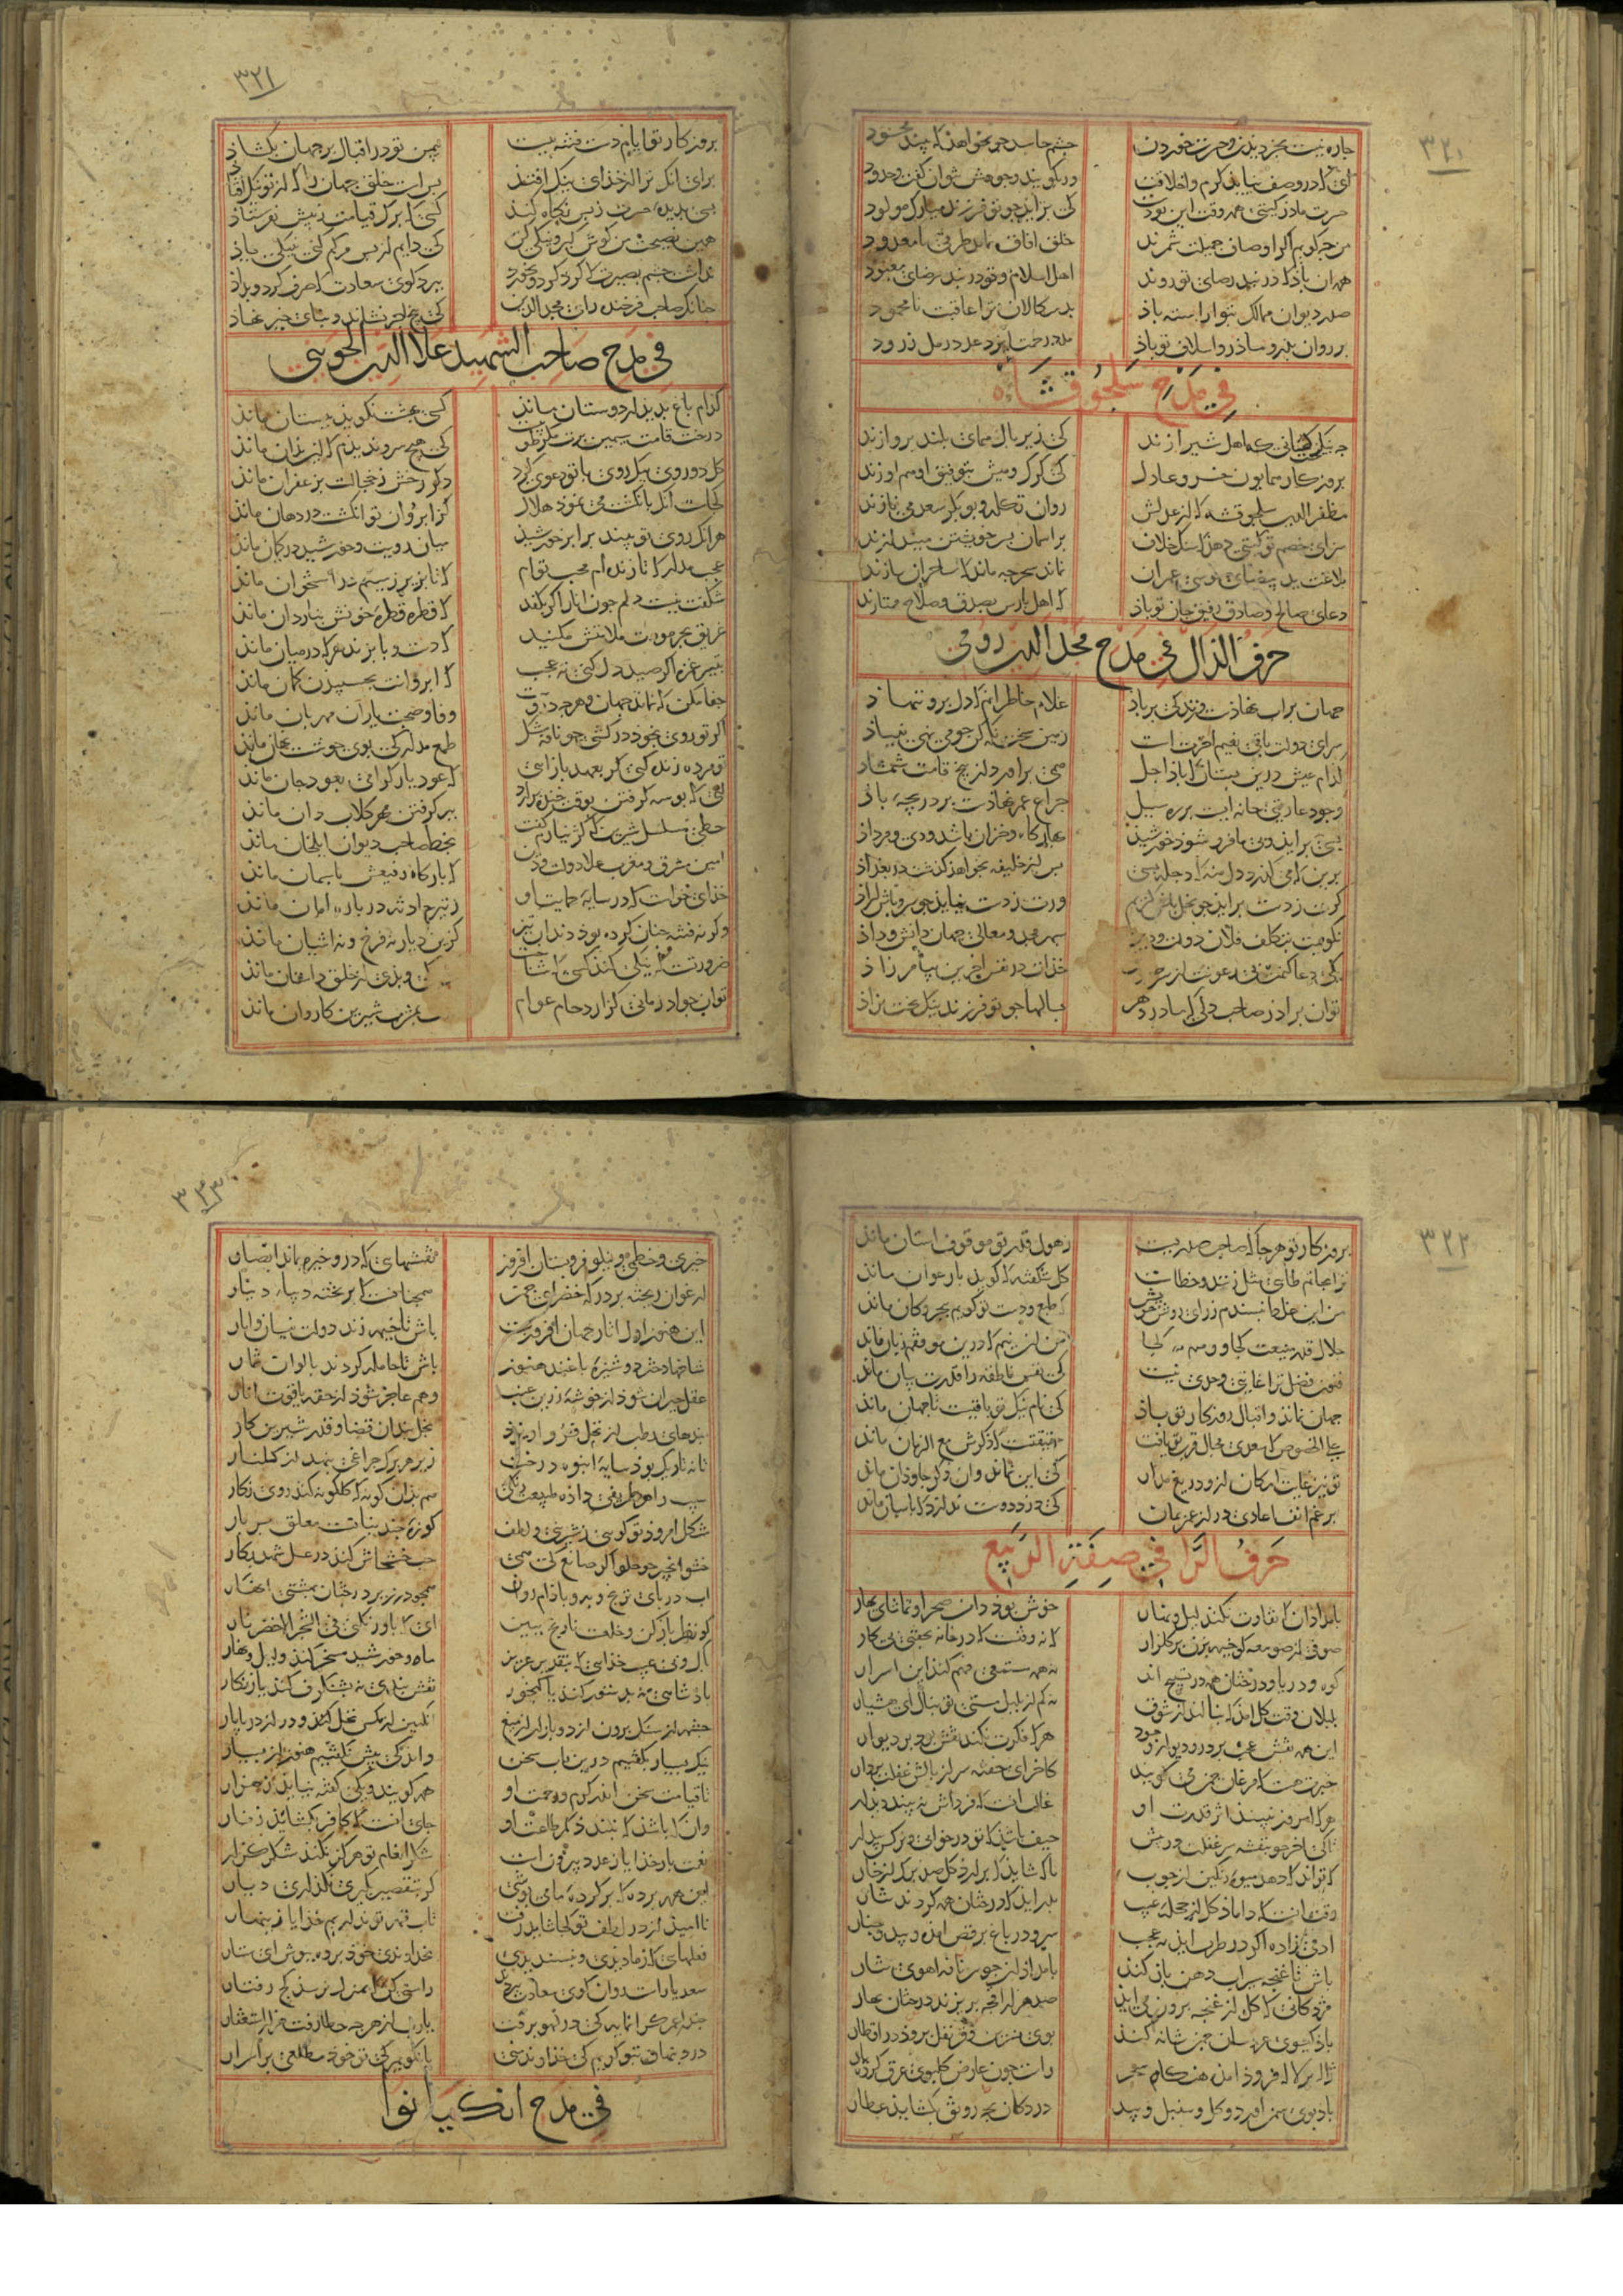 ۳۲۰
چاره نیست بجز دیدن و حسرت خوردن چشم حاسد که نخواهد که بیند محسود
ای که در وصف نیاید کرم و اخلاقت ور بگویند وجوهش نتوان گفت و حدود
حسرت مادر گیتی همه وقت این بودست کی بزاید چو تو فرزند مبارک مولود
من چه گویم اگر اوصاف جمیلت شمرند خلق آفاق بماند طرفی نامعدود
همه آن باد که در بند رضای تو روند اهل اسلام و تو در بند رضای معبود
صدر دیوان ممالک بتو آراسته باد بدسگالان ترا عاقبت نامحمود
بر روان پدر و مادر و اسلاف تو باد مدد رحمت ایزد عدد رمل زرود
فی مدح سلجوقشاه
چه نیکبختانی که اهل شیرازند کی زیر بال همای بلند پروازند
بروزگار همایون خسرو عادل کی گرگ و میش بتوفیق او هم آوازند
مظفر الدین سلجوقشه که از عدلش روان تکله و بوبکر سعد می نازند
سزای خصم تو گیتی دهد که سنگ خلاف بر آسمان بسر خویشتن میندازند
بلاغت ید بیضای موسی عمران نماند سحر چه ماند که ساحران بازند
دعای صالح و صادق رفیق جان تو باد که اهل پارس بصدق و صلاح ممتازند
حرف الذال فی مدح مجد الدین رومی
جهان بر آب نهادست و زندگی بر باد غلام خاطر آنم که دل برو ننهاد
سرای دولت باقی نعیم آخرتست زمین سخت نگه کن چو می نهی بنیاد
کدام عیش درین بستان که باد اجل همی برآورد از بیخ قامت شمشاد
وجود عاریتی خانه ایست بر ره سیل چراغ عمر نهادست بر دریچه باد
بسی برآید و بی ما فرو شود خورشید بهارگاه و خزان باشد و دی و مرداد
برین که می گذرد دل منه که دجله بسی پس از خلیفه بخواهد گذشت در بغداد
گرت ز دست برآید چو نخل باش کریم ورت ز دست نیاید چو سرو باش آزاد
نگویمت بتکلف فلان دولت و دین سپهر مجد و معالی جهان دانش و داد
یکی دعا کنمت بی رعونت از سر صدق خدات در نفس آخرین بیامرزاد
توان برادر صاحب دلی که مادر دهر بسالها چو تو فرزند نیک بخت نزاد
۳۲۱
بروزگار تو ایام دست فتنه ببست بیمن تو در اقبال بر جهان بگشاد
برای آنک ترا از خدای نیک افتد بس است خلق جهان را که از تو نیک افتاد
بسی بدیده حسرت ز پس نگاه کند کسی که برگ قیامت ز پیش نفرستاد
همین نصیحت من گوش گیر و نیکی کن کی دایم از پس مرگم کنی بنیکی یاد
نداشت چشم بصیرت که گرد کرد و نخورد ببرد گوی سعادت که صرف کرد و بداد
چنانک صاحب فرخنده رای مجدالدین کی بیخ اجر نشاند و بنای خیر نهاد
فی مدح صاحب الشهید علا الدین الجوینی
کدام باغ بدیدار دوستان ماند کسی بهشت نگوید ببوستان ماند
درخت قامت سیمین برت مگر طوبیست کی هیچ سرو ندیدم که این بدان ماند
گل دو روی بیک روی با تو دعوی کرد دگر رخش ز خجالت بزعفران ماند
کجاست آنک بانگشت می نمود هلال کز ابروان تو انگشت در دهان ماند
هر آنک روی تو بیند برابر خورشید میان رویت و خورشید در گمان ماند
عجب مدار که تا زنده ام محب توام که تا بزیر زمینم در استخوان ماند
شگفت نیست دلم چون انار اگر بکفد که قطره قطره خونش بناردان ماند
غریق بحر مودت ملامتش مکنید که دست و پا بزند هر که در میان ماند
بتیر غمزه اگر صید دل کنی نه عجب که ابروانت بخمیدن کمان ماند
جفا مکن که نماند جهان و هرچه دروست وفا و صحبت یاران مهربان ماند
اگر تو روی بخود درکشی چو نافه مشک طمع مدار کی بوی خوشت نهان ماند
تو مرده زنده کنی گر بعهد بازآیی که عود یار گرامی بعود جان ماند
لبی که بوسه گرفتن بوقت خنده برآرد بسر گرفتن مهر گلابدان ماند
خطی مسلسل شیرین که گر نیارم گفت بخط صاحب دیوان ایلخان ماند
امین مشرق و مغرب علا دولت و دین که بارگاه رفیعش بآسمان ماند
خدای خواست که در سایه حمایت او ز تیر حادثه در باره امان ماند
وگرنه فتنه چنان کرده بود دندان تیز کزین دیار نه فرخ و نه آشیان ماند
ضرورتست که نیکی کند کسی که شناخت که نیکی و بدی از خلق داستان ماند
توان جواد زمانی کز ازدحام عوام بشیرین کاروان ماند
۳۲۲
بروزگار تو هرجا که صاحب صدریست ز هول قدر تو موقوف آستان ماند
ترا بحاتم طائی مثل زنند و خطاست گل شکفته که گوید بارغوان ماند
من این غلط نپسندم ز رای روشن خویش که طبع و دست تو گویم ببحر و کان ماند
جلال قدر منیعت کجا و وهم کجا من آن نیم که درین موقفم زبان ماند
فنون فضل ترا غایتی و حدی نیست کی نفس ناطقه را قدرت بیان ماند
جهان نماند و اقبال روزگار تو باد کی نام نیک تو باقیست تا جهان ماند
علی الخصوص که سعدی مجال قرب تو یافت حقیقتست که ذکرش مع الزمان ماند
تو نیز غایت امکان ازو دریغ مدار کی این نماند و آن ذکر جاودان ماند
برغم انف اعادی دراز عمر بمان کی دزد دوست ندارد که پاسبان ماند
حرف الرا فی صفة الربیع
بامدادان که تفاوت نکند لیل و نهار خوش بود دامن صحرا و تماشای بهار
صوفی از صومعه گو خیمه بزن بر گلزار که نه وقتست که در خانه بخفتی بیکار
کوه و دریا و درختان همه در تسبیح اند نه همه مستمعی فهم کند این اسرار
بلبلان وقت گل آمد که بنالند از شوق نه کم از بلبل مستی تو بنال ای هشیار
این همه نقش عجب بر در و دیوار وجود هر که فکرت نکند نقش بود بر دیوار
خبرت هست که مرغان چمن می گویند کاخر ای خفته سر از بالش غفلت بردار
هر که امروز نبیند اثر قدرت او غالب آنست که فرداش نه بیند دیدار
تا کی آخر چو بنفشه سر غفلت در پیش حیف باشد که تو در خوابی و نرگس بیدار
که تواند که دهد میوه رنگین از چوب یا که شاید که برآرد گل صد برگ از خار
وقت آنست که داماد گل از حجله غیب بدر آید که درختان همه کردند نثار
آدمی زاده اگر در طرب آید نه عجب سرو در باغ برقص آمده و بید و چنار
باش تا غنچه سیراب دهن باز کند بامداد از چو سر نافه آهوی تتار
مژدگانی که گل از غنچه برون می آید صد هزار اقچه بریزند درختان بهار
باد گیسوی عروسان چمن شانه کند بوی نسرین و قرنفل برود در اقطار
ژاله بر لاله فرود آمده هنگام سحر راست چون عارض گلبوی عرق کرده یار
باد بوی سمن آورد و گل و سنبل و بید در دکان بچه رونق بگشاید عطار
۳۲۳
خیری و خطمی و نیلوفر و بستان افروز نقشهایی که درو خیره بماند ابصار
ارغوان ریخته بر درگه خضرای چمن همچنانست که بر تخته دیبا دینار
این هنوز اول آثار جهان افروزیست باش تا خیمه زند دولت نیسان و ایار
شاخها دختر دوشیزه باغند هنوز باش تا حامله گردند بالوان ثمار
عقل حیران شود از خوشه زرین عنب وهم عاجز شود از حقه یاقوت انار
بندهای رطب از نخل فرو آویزد نخل بندان قضا و قدر شیرین کار
تا نه تاریک بود سایه انبوه درخت زیر هر برگ چراغی بنهد از گلنار
سیب را هر طرفی داده طبیعت رنگی هم بدان گونه که گلگونه کند روی نگار
شکل امرود تو گویی ز شیرینی و لطف کوزه چند نباتست معلق بر بار
حشو انجیر چو حلواگر صانع کی همی حب خشخاش کند در عسل شهد بکار
آب در پای ترنج و به و بادام روان همچو در زیر درختان بهشتی انهار
گو نظر باز کن و خلقت نارنج ببین ای که باور نکنی فی الشجر الاخضر نار
پاک و بی عیب خدایی که بتقدیر عزیز ماه و خورشید مسخر کند و لیل و نهار
پادشاهی نه بدستور کند یا گنجور نقش بندی نه بشنگرف کند یا زنگار
چشمه از سنگ برون آرد و باران از میغ انگبین از مگس نحل و در از دریابار
نیک بسیار بگفتیم درین باب سخن و اندکی بیش نگفتیم هنوز از بسیار
تا قیامت سخن اندر کرم و رحمت او همه گویند و یکی گفته نیاید ز هزار
وان که باشد که نبندد کمر طاعت او جای آنست که کافر بگشاید زنار
نعمت بار خدایا ز عدد بیرونست شکر انعام تو هرگز نکند شکرگزار
این همه پرده که بر کرده ما می پوشی گر بتقصیر بگیری نگذاری دیار
ناامید از در لطف تو کجا شاید رفت تاب قهر تو نداریم خدایا زنهار
فعلهایی که ز ما دیدی و نپسندیدی بخداوندی خود پرده بپوش ای ستار
سعدیا راست روان گوی سعادت بردند راستی کن که بمنزل نرسد کج رفتار
حبذا عمر گرانمایه کی در لهو برفت یارب از هرچه خطا رفت هزار استغفار
درد پنهان بتو گویم کی خداوند منی یا نگویم کی تو خود مطلعی بر اسرار
فی مدح انکیانوا